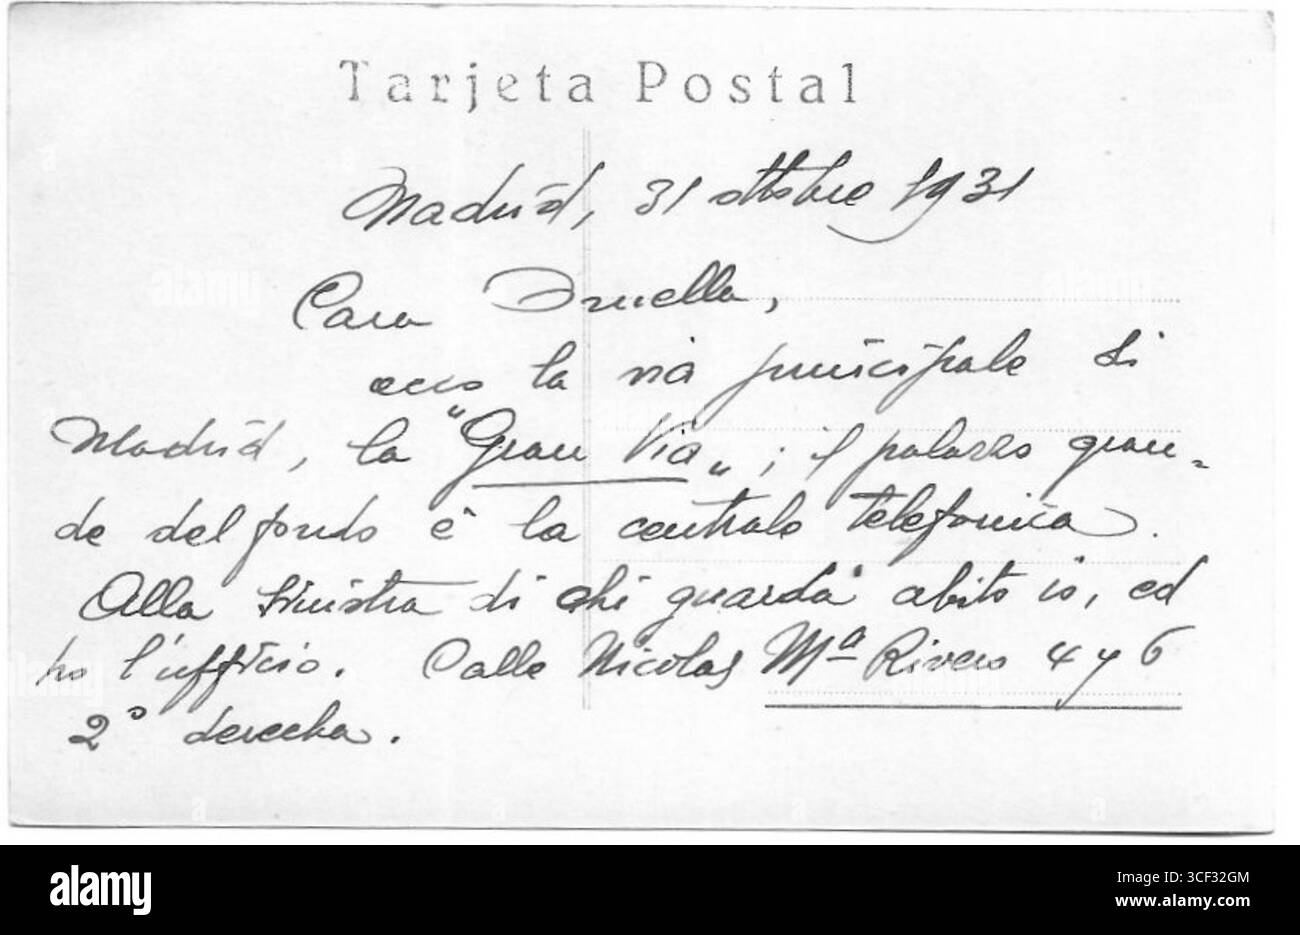 Tarjeta Postal
Madrid, 31 ottobre 1931
Cara
ecco la via principale di
Madrid, la "Gran Via"; il palazzo gran-
de del fondo è la centrale telefonica.
Alla sinistra di chi guarda abito io, ed
ho l'ufficio. Calle Nicolas Mª Rivero 4 y 6
2º derecha.
alamy
Image ID: 3CF32GM
www.alamy.com